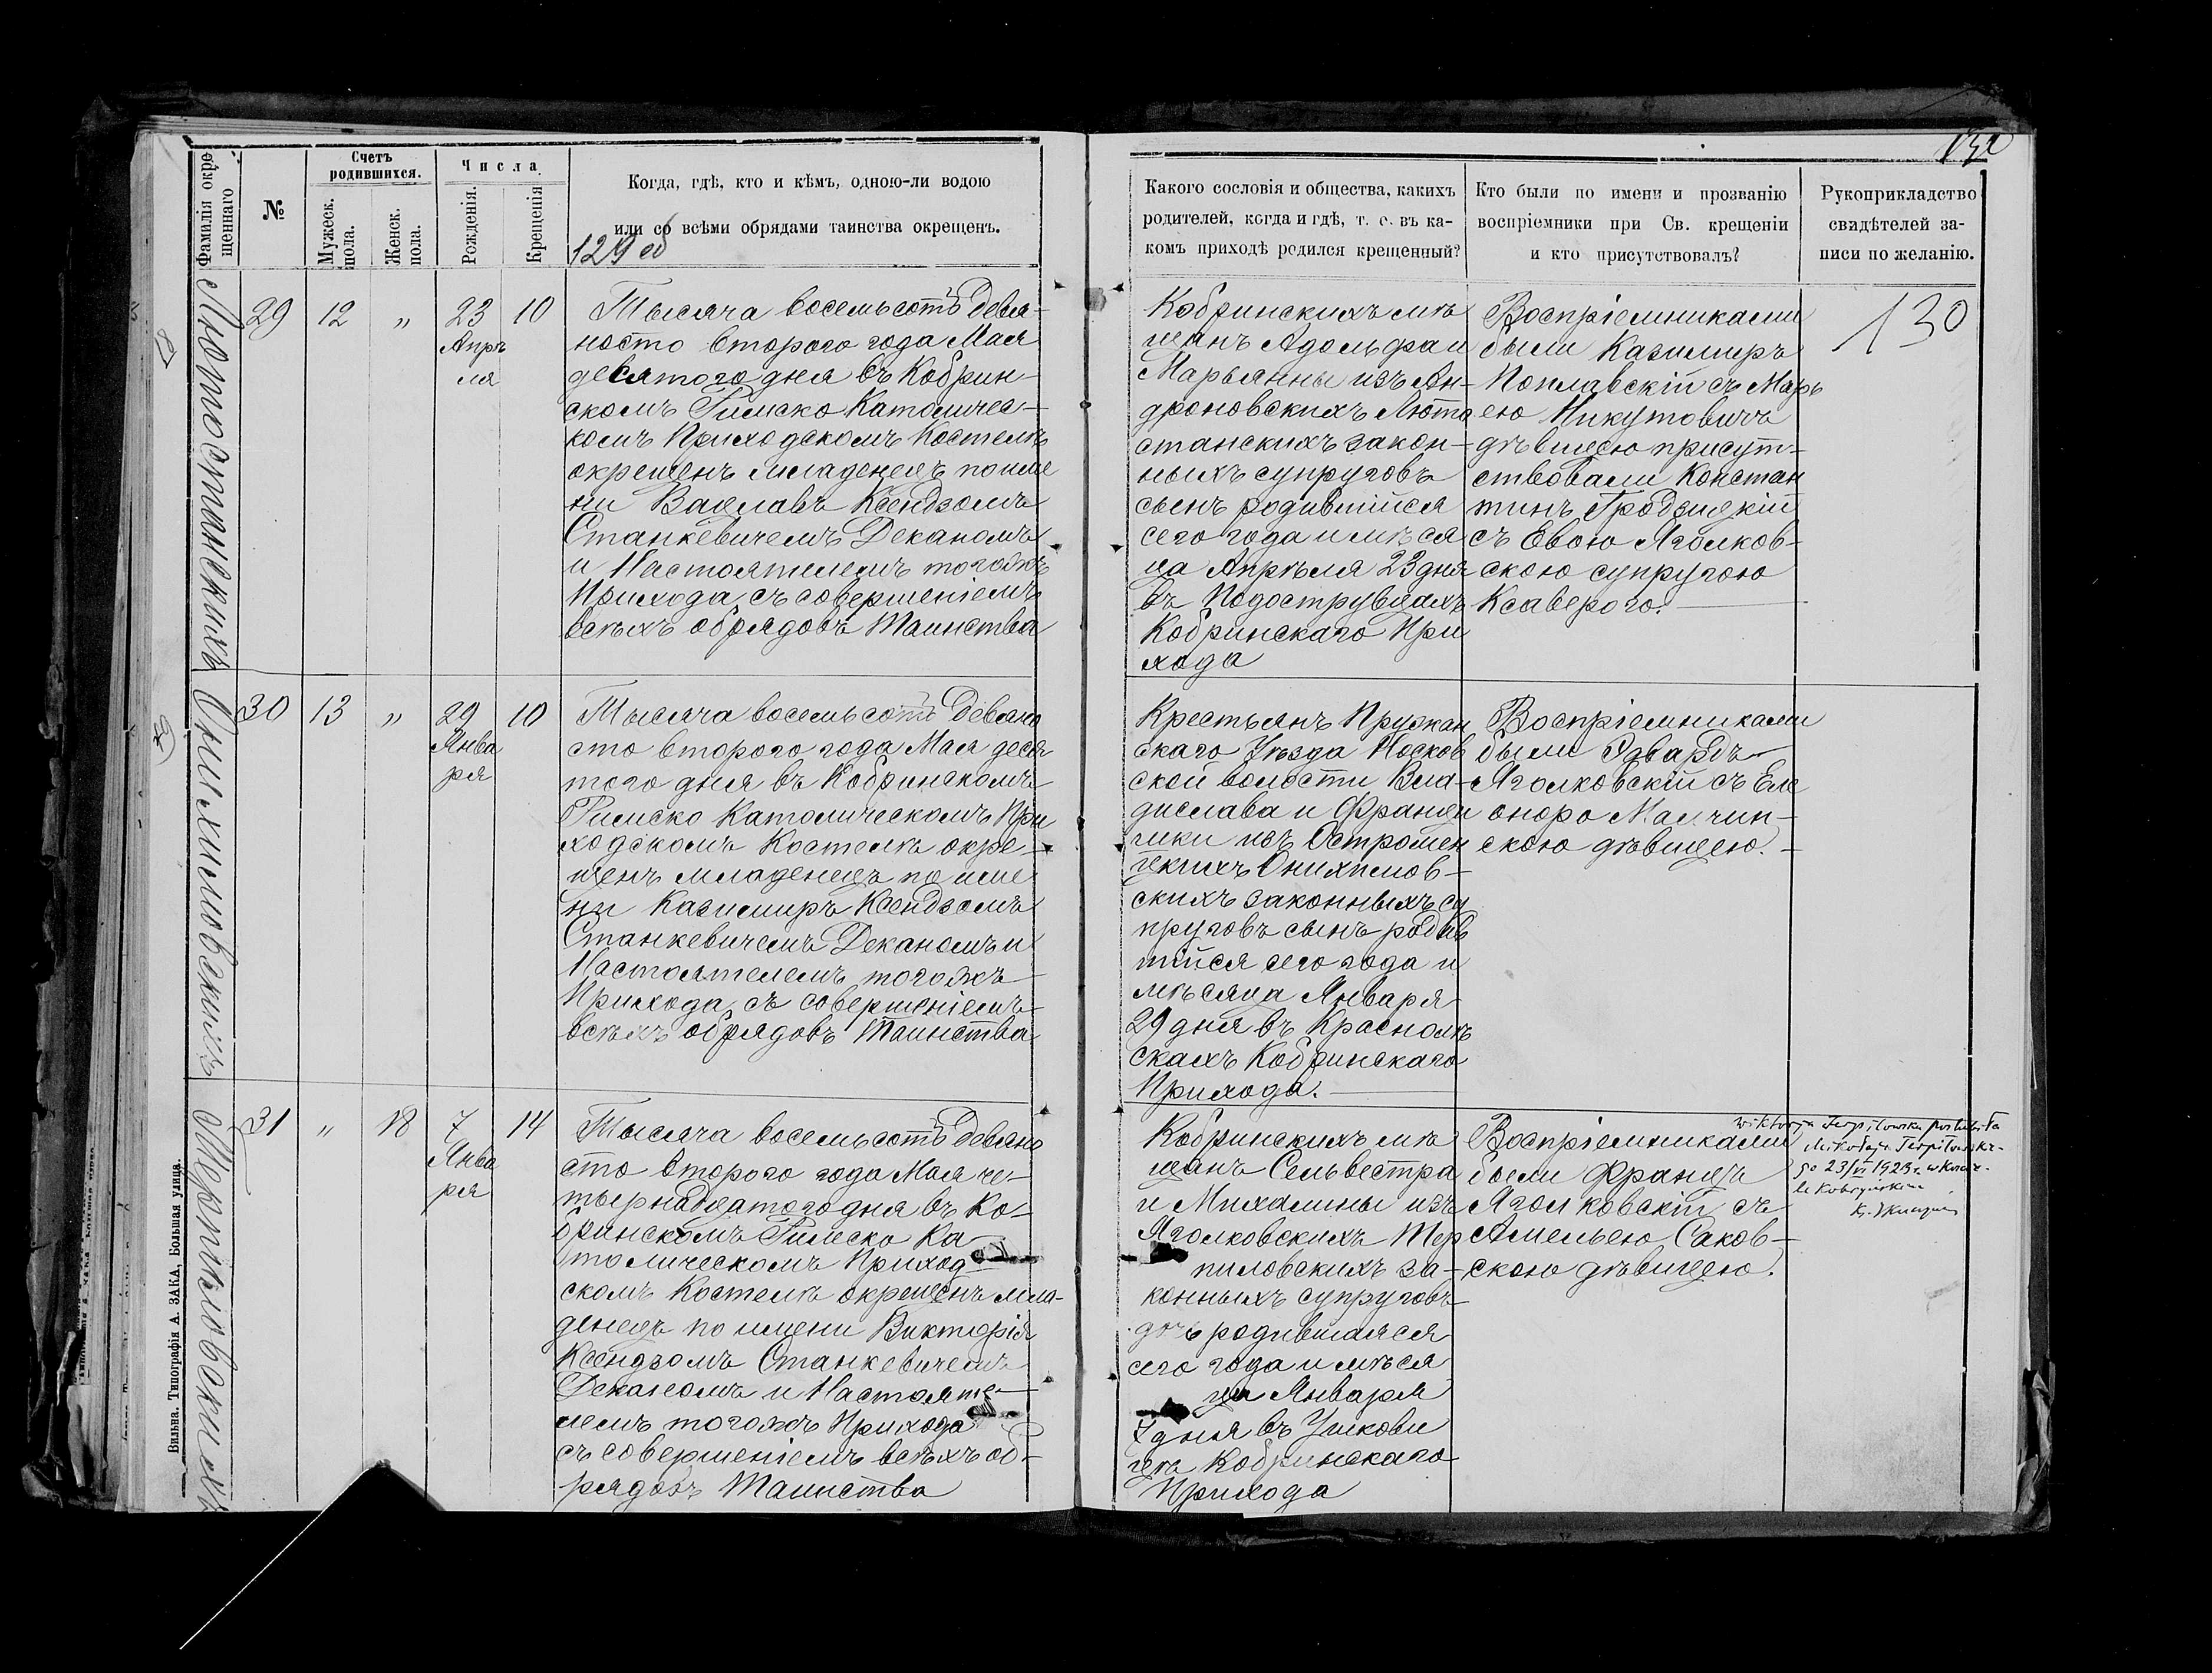 Фамилія окре-
щеннаго
№
Счетъ
родившихся.
Мужеск.
пола.
Женск.
пола.
Числа
Рожденія.
Крещенія
Когда, гдѣ, кто и кѣмъ, одною-ли водою
или со всѣми обрядами таинства окрещенъ.
129 об
Лютостанскихъ
29
12
„
23
Апрѣ
ля
10
Тысяча восемьсотъ девя-
носто втораго года Мая
десятого дня въ Кобрин-
скомъ Римско Католичес-
комъ Приходскомъ Костелѣ
окрещенъ младенецъ по име
ни Вацлавъ Ксендзомъ
Станкевичемъ Деканомъ
и Настоятелемъ тогожъ
Прихода, съ совершеніемъ
всѣхъ обрядовъ Таинства
Онихимовскихъ
30
13
„
29
Янва
ря
10
Тысяча восемьсотъ девяно
сто второго года Мая деся
того дня въ Кобринскомъ
Римско Католическомъ При
ходскомъ Костелѣ окре-
щенъ младенецъ по име
ни Казимиръ Ксендзомъ
Станкевичемъ Деканомъ и
Настоятелемъ тогожъ
Прихода, съ совершеніемъ
всѣхъ обрядовъ Таинства
Терпиловскихъ
31
„
18
7
Янва
ря
14
Тысяча восемьсотъ девяно
сто второго года Мая че-
тырнадцатого дня въ Ко-
бринскомъ Римско Ка
толическомъ Приход
скомъ Костелѣ окрещенъ мла-
денецъ по имени Викторія
Ксендзомъ Станкевичемъ
Деканомъ и Настояте-
лемъ тогожъ Прихода
съ совершеніемъ всѣхъ об-
рядовъ Таинства
Вильна. Типографія А. ЗАКА, Большая улица.
Какого сословія и общества, какихъ
родителей, когда и гдѣ, т. е. въ ка-
комъ приходѣ родился крещенный?
Кто были по имени и прозванію
воспріемники при Св. крещеніи
и кто присутствовалъ?
Рукоприкладство
свидѣтелей за-
писи по желанію.
130
Кобринскихъ мѣ
щанъ Адольфа и
Марьянны изъ Ан-
дроновскихъ Люто
станскихъ закон-
ныхъ супруговъ
сынъ родившійся
сего года и мѣся
ца Апрѣля 23 дня
въ
Кобринскаго При
хода
Воспріемниками
были Казимиръ
Поплавскій съ Марь
ею Микутовичъ
дѣвицею присут-
ствовали Констан
тинъ Гродзицкій
съ Евою Яголков-
скою супругою
Ксаверого.
Крестьянъ Пружан
скаго Уѣзда Носков
ской волости Вла-
дислава и Франци
шки изъ Остромен
цкихъ Онихимов-
скихъ законныхъ су
пруговъ сынъ родив
шійся сего года и
мѣсяца Января
29 дня въ
скахъ Кобринскаго
Прихода.
Воспріемниками
были Эдвардъ
Яголковскій съ Еле
оноро Малчин-
скою дѣвицею.
Кобринскихъ мѣ
щанъ Сельвестра
и Михалины изъ
Яголковскихъ Тер
пиловскихъ за-
конныхъ супруговъ
дочь родившаяся
сего года и мѣся
ца Января
7 дня въ Ушкови
цѣ Кобринскаго
Прихода
Воспріемниками
были Францъ
Яголковскій съ
Амельею Саков-
скою дѣвицею.
Wiktorja Terpiłowska poślubiła
Mikołaja Terpiłowskie-
go 23/VI 1923 r. w